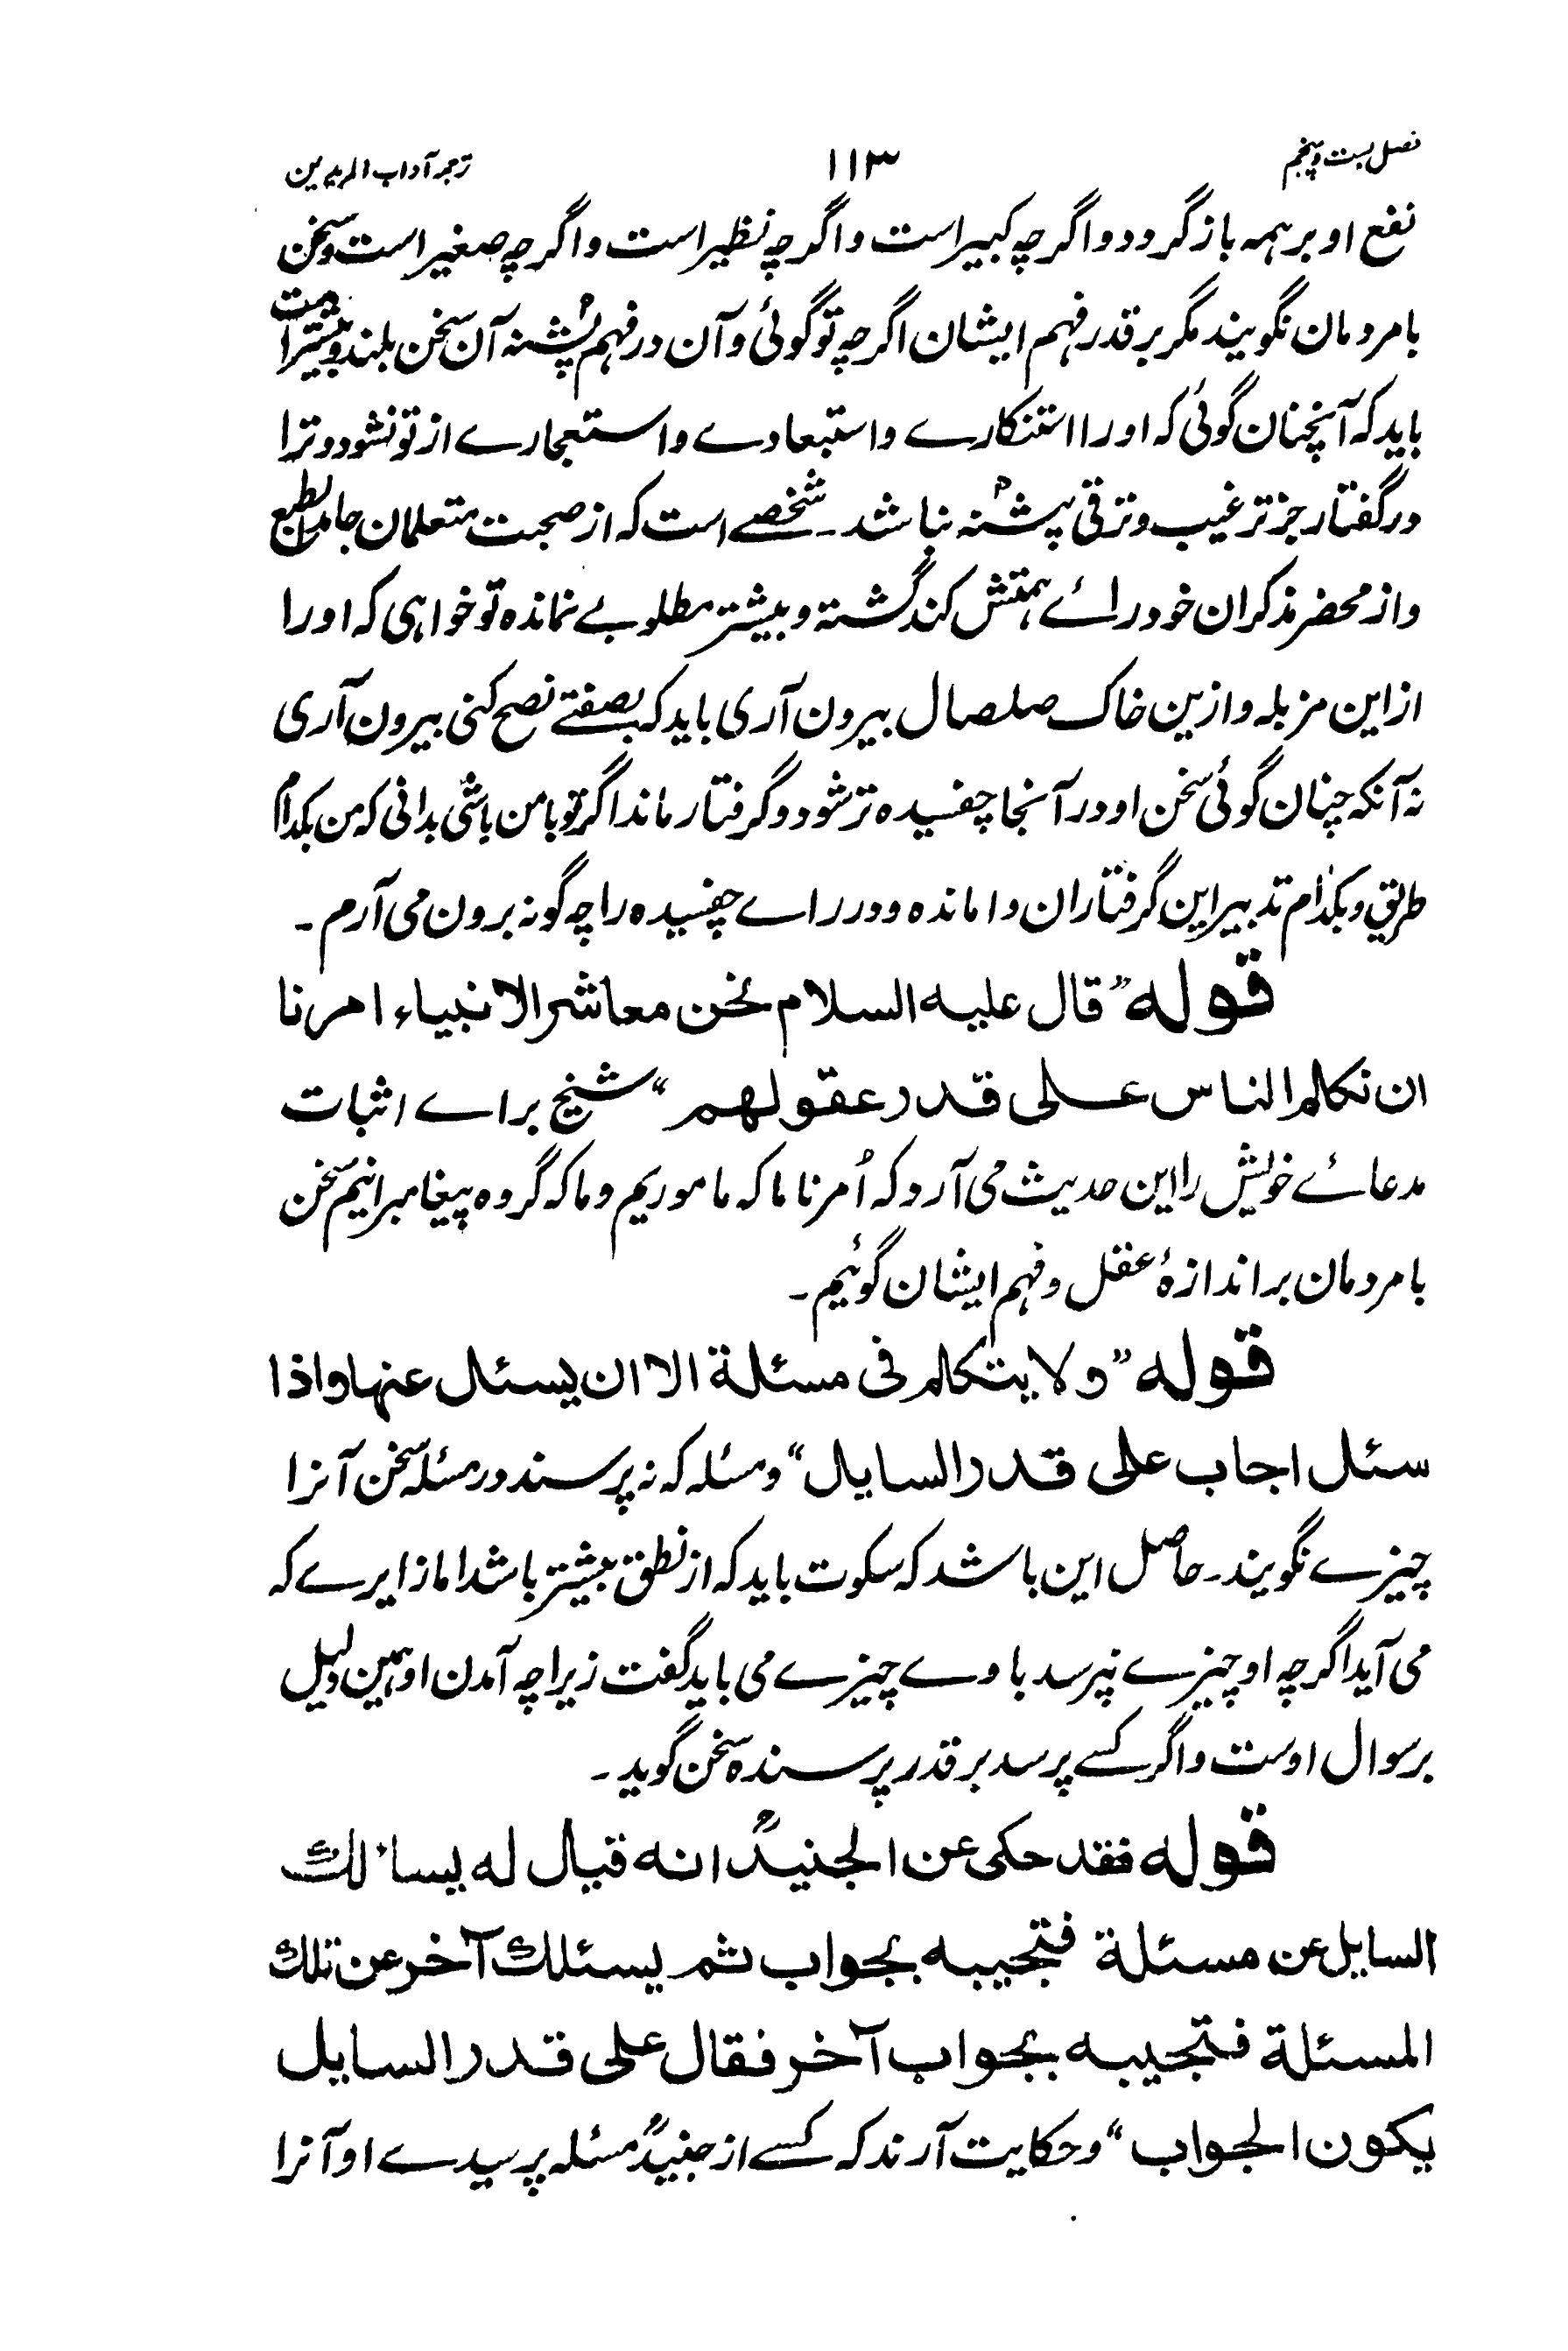 فصل بست و پنجم ۱۱۳ ترجمہ آداب المریدین
نفع او بر ہمہ باز گردد و اگرچہ کبیر است و اگرچہ نظیر است و اگرچہ صغیر است و سخن
با مردمان نگویند مگر بر قدر فہم ایشان اگرچہ تو گوئی و آن در فہم آن سخن بلند و بیشتر است
باید کہ آنچنان گوئی کہ او را استنکارے و استبعادے و استعجارے از تو نشود و ترا
در گفتار جز ترغیب و ترقی نباشد ۔ شخصے است کہ از صحبت متعلمان جامد الطبع
و از محضر مذکران خود رائے ہمتش کند گشتہ و بیشتر مطلوبے نماندہ تو خواہی کہ او را
از این مزبلہ و ازین خاک صلصال بیرون آری باید کہ بصفتے نصح کنی بیرون آری
نہ آنکہ چنان گوئی سخن او در آنجا چفسیدہ تر شود و گرفتار ماند اگر تو با من باشی بدانی کہ من بکدام
طریق و بکدام تدبیر این گرفتاران وا ماندہ و در راے چفسیدہ را چہ گونہ برون می آرم ۔
قولہ ”قال علیہ السلام نحن معاشر الانبیاء امرنا
ان نکلم الناس علی قدر عقولھم“ شیخ براے اثبات
مدعائے خویش را این حدیث می آرد کہ اُمرنا ما کہ ماموریم و ما کہ گروہ پیغامبرانیم سخن
با مردمان بر اندازۂ عقل و فہم ایشان گوئیم ۔
قولہ ”ولا یتکلم فی مسئلة الا ان یسئل عنہا واذا
سئل اجاب علی قدر السایل“ و مسئلہ کہ نہ پرسند در مسئلہ سخن آنرا
چیزے نگویند ۔ حاصل این باشد کہ سکوت باید کہ از نطق بیشتر باشد اما زایرے کہ
می آید اگرچہ او چیزے نپرسد با وے چیزے می باید گفت زیراچہ آمدن او ہمین دلیل
بر سوال اوست و اگر کسے پرسد بر قدر پرسندہ سخن گوید ۔
قولہ فقد حکی عن الجنیدؒ انہ قیال لہ یسائلك
السایل عن مسئلة فتجیبہ بجواب ثم یسئلك آخر عن تلك
المسئلة فتجیبہ بجواب آخر فقال علی قدر السایل
یکون الجواب“ و حکایت آرند کہ کسے از جنیدؒ مسئلہ پرسیدے او آنرا